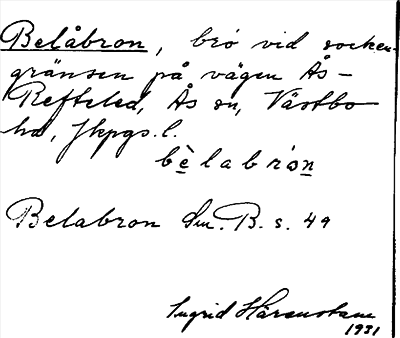 Belåbron, bro vid socken-
gränsen på vägen Ås –
Refteled, Ås sn, Västbo
hd, Jkpgs. l.
bèlabrón
Belabron Sm. B. s. 49
Ingrid Härenstam
1931